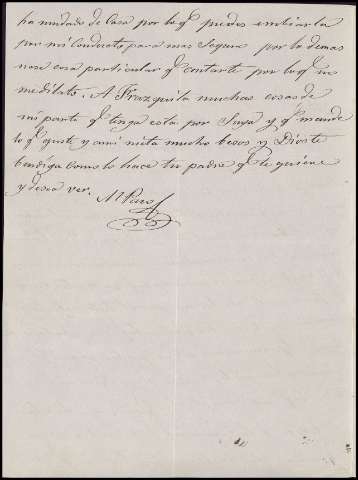 ha mudado de Casa por lo q.e puedes embiarla
por mi conducto para mas segura por lo demas
no se cosa particular q.e contarte por lo q.e no
me dilato. A Frazquita muchas cosas de
mi parte q.e tenga esta por Suya y q.e mande
lo q.e guste y ami nieta mucho besos y Dios te
bendiga como lo hace tu padre q.e te quiere
y desea ver.